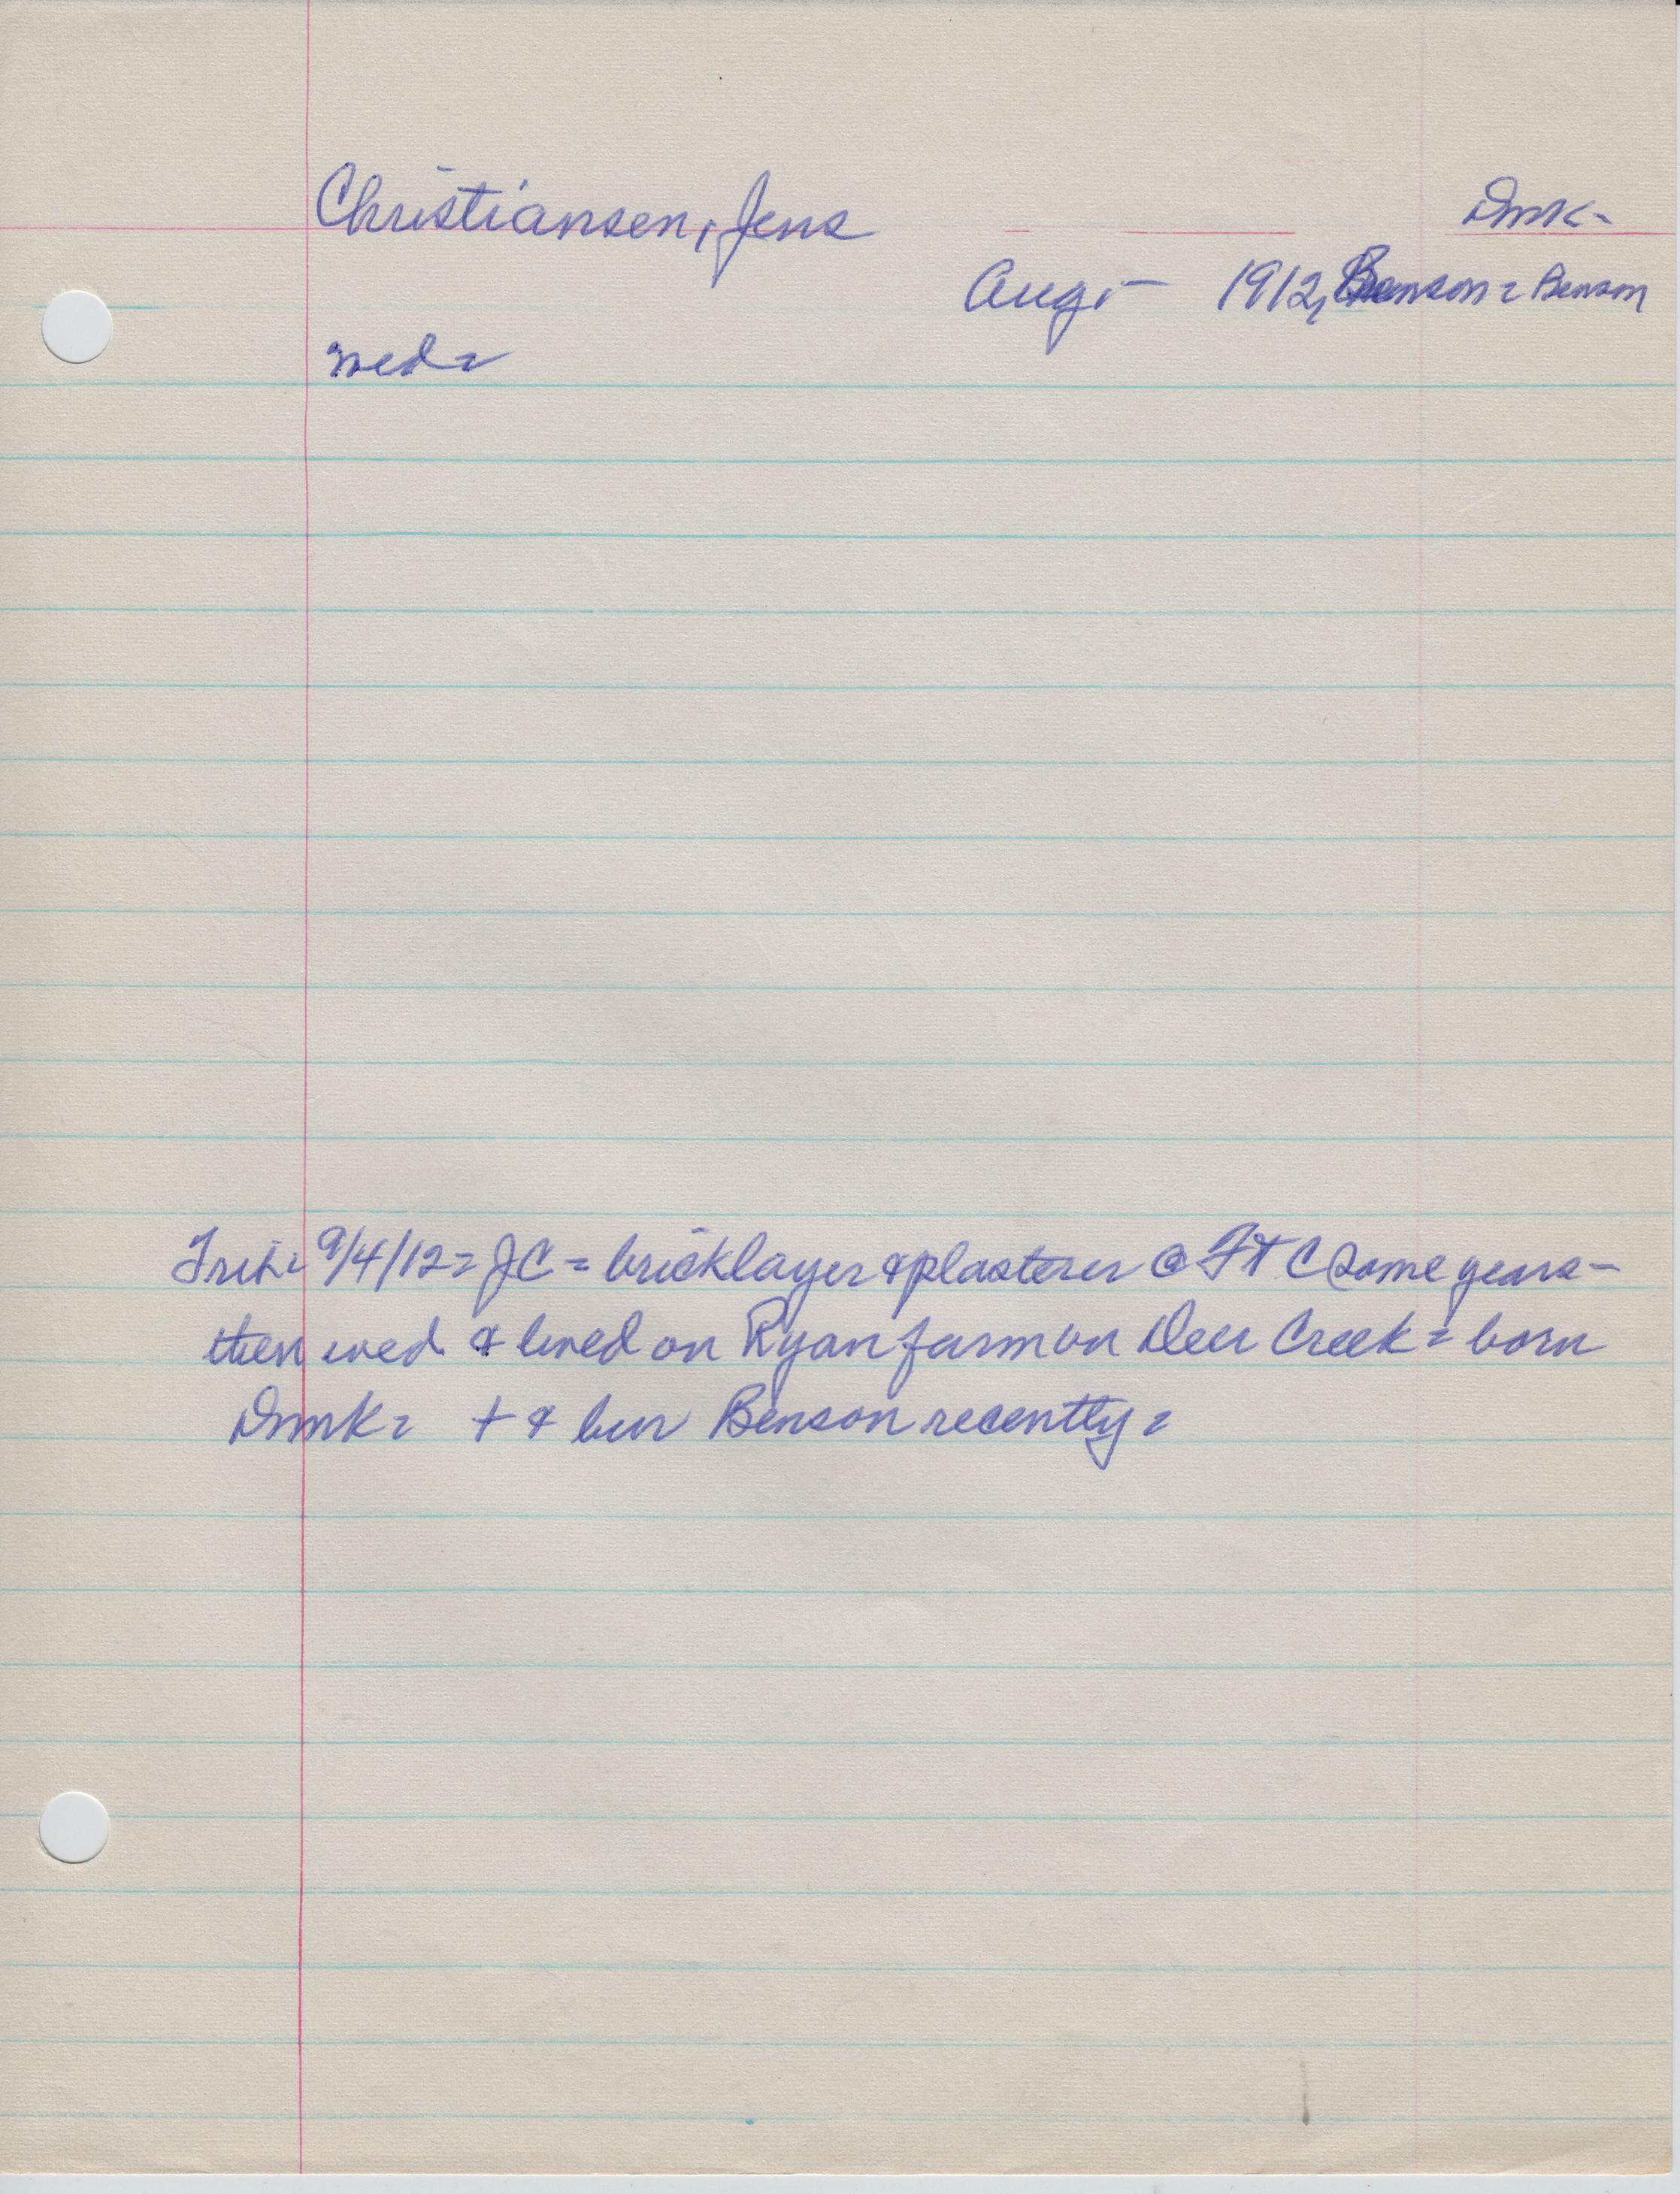 Christiansen, Jens Dmk-
Aug - 1912, Benson = Benson
wed =
Trib = 9/4/12 = JC = bricklayer & plasterer @ Ft C some years -
then wed & lived on Ryan farm on Deer Creek = born
Dnmk = + & bur Benson recently =